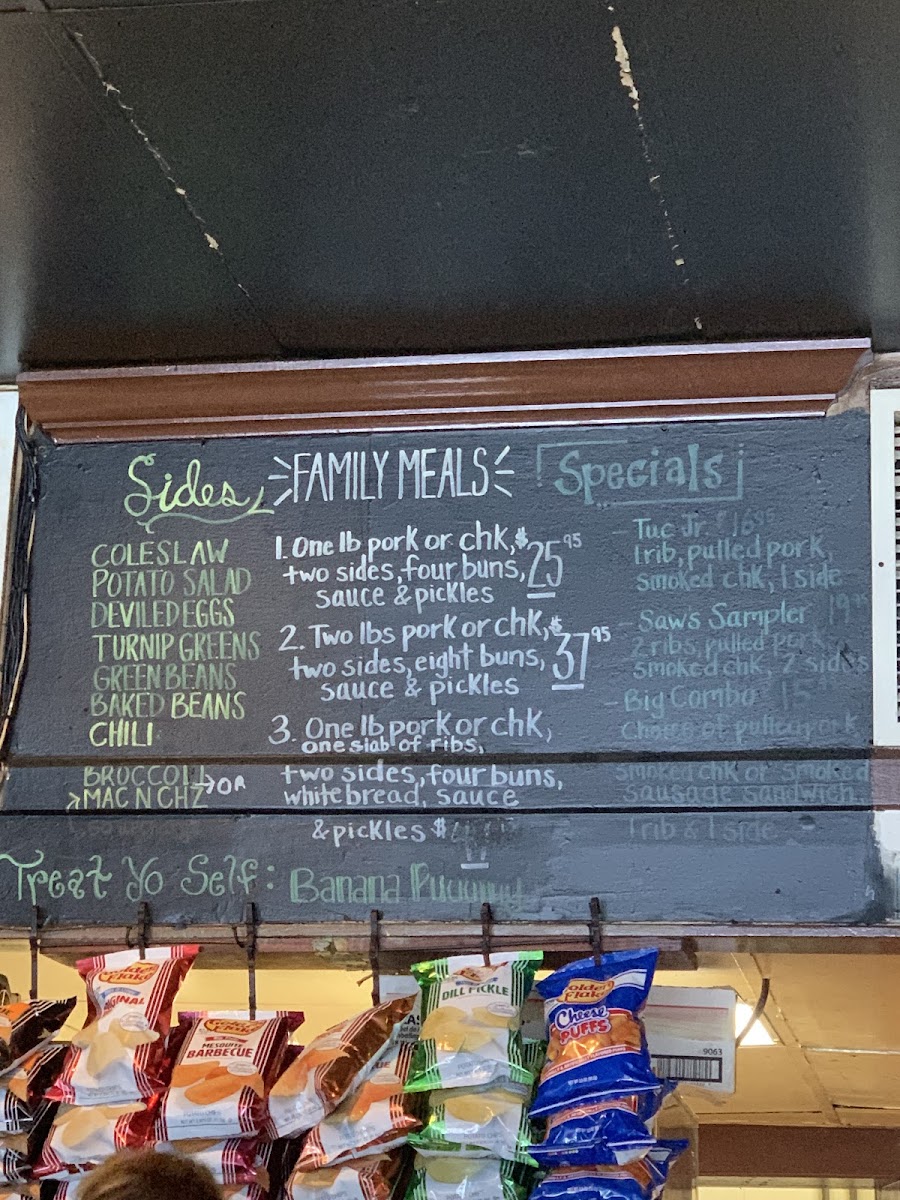 Sides
COLESLAW
POTATO SALAD
DEVILED EGGS
TURNIP GREENS
GREEN BEANS
BAKED BEANS
CHILI
BROCCOLI
MAC N CHZ → OR
FAMILY MEALS
1. One lb pork or chk, $25.95
two sides, four buns,
sauce & pickles
2. Two lbs pork or chk, $37.95
two sides, eight buns,
sauce & pickles
3. One lb pork or chk,
one slab of ribs,
two sides, four buns,
white bread, sauce
& pickles $
Specials
- Tuc Jr 16.95
1 rib, pulled pork,
smoked chk, 1 side
- Saws Sampler
2 ribs, pulled pork,
smoked chk, 2 sides
- Big Combo
Choice of pulled pork
smoked chk or smoked
sausage sandwich
1 rib & 1 side
Treat Yo Self: Banana Pudding
Golden Flake
ORIGINAL
MESQUITE
BARBECUE
DILL PICKLE
Golden Flake
Cheese
PUFFS
9063